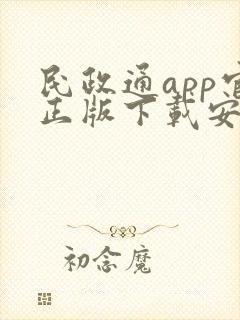 民政通app官
正版下载安
初念魔